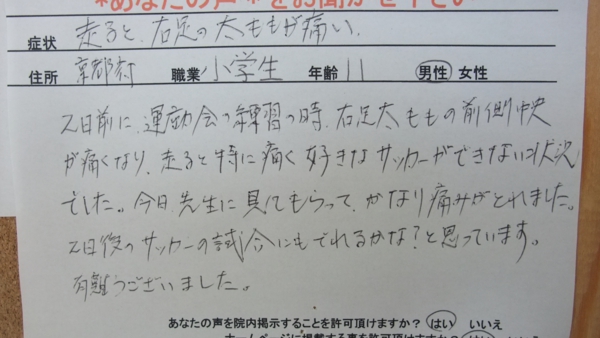 *あなたの声*をお聞かせ下さい
症状 走ると、右足の太ももが痛い。
住所 京都府 職業 小学生 年齢 11 男性 女性
2日前に、運動会の練習の時、右足太ももの前側中央
が痛くなり、走ると特に痛く好きなサッカーができない状況
でした。今日、先生に見てもらって、かなり痛みがとれました。
2日後のサッカーの試合にもでれるかな?と思っています。
有難うございました。
あなたの声を院内掲示することを許可頂けますか? はい いいえ
ホームページに掲載する事を許可頂けますか? はい いいえ